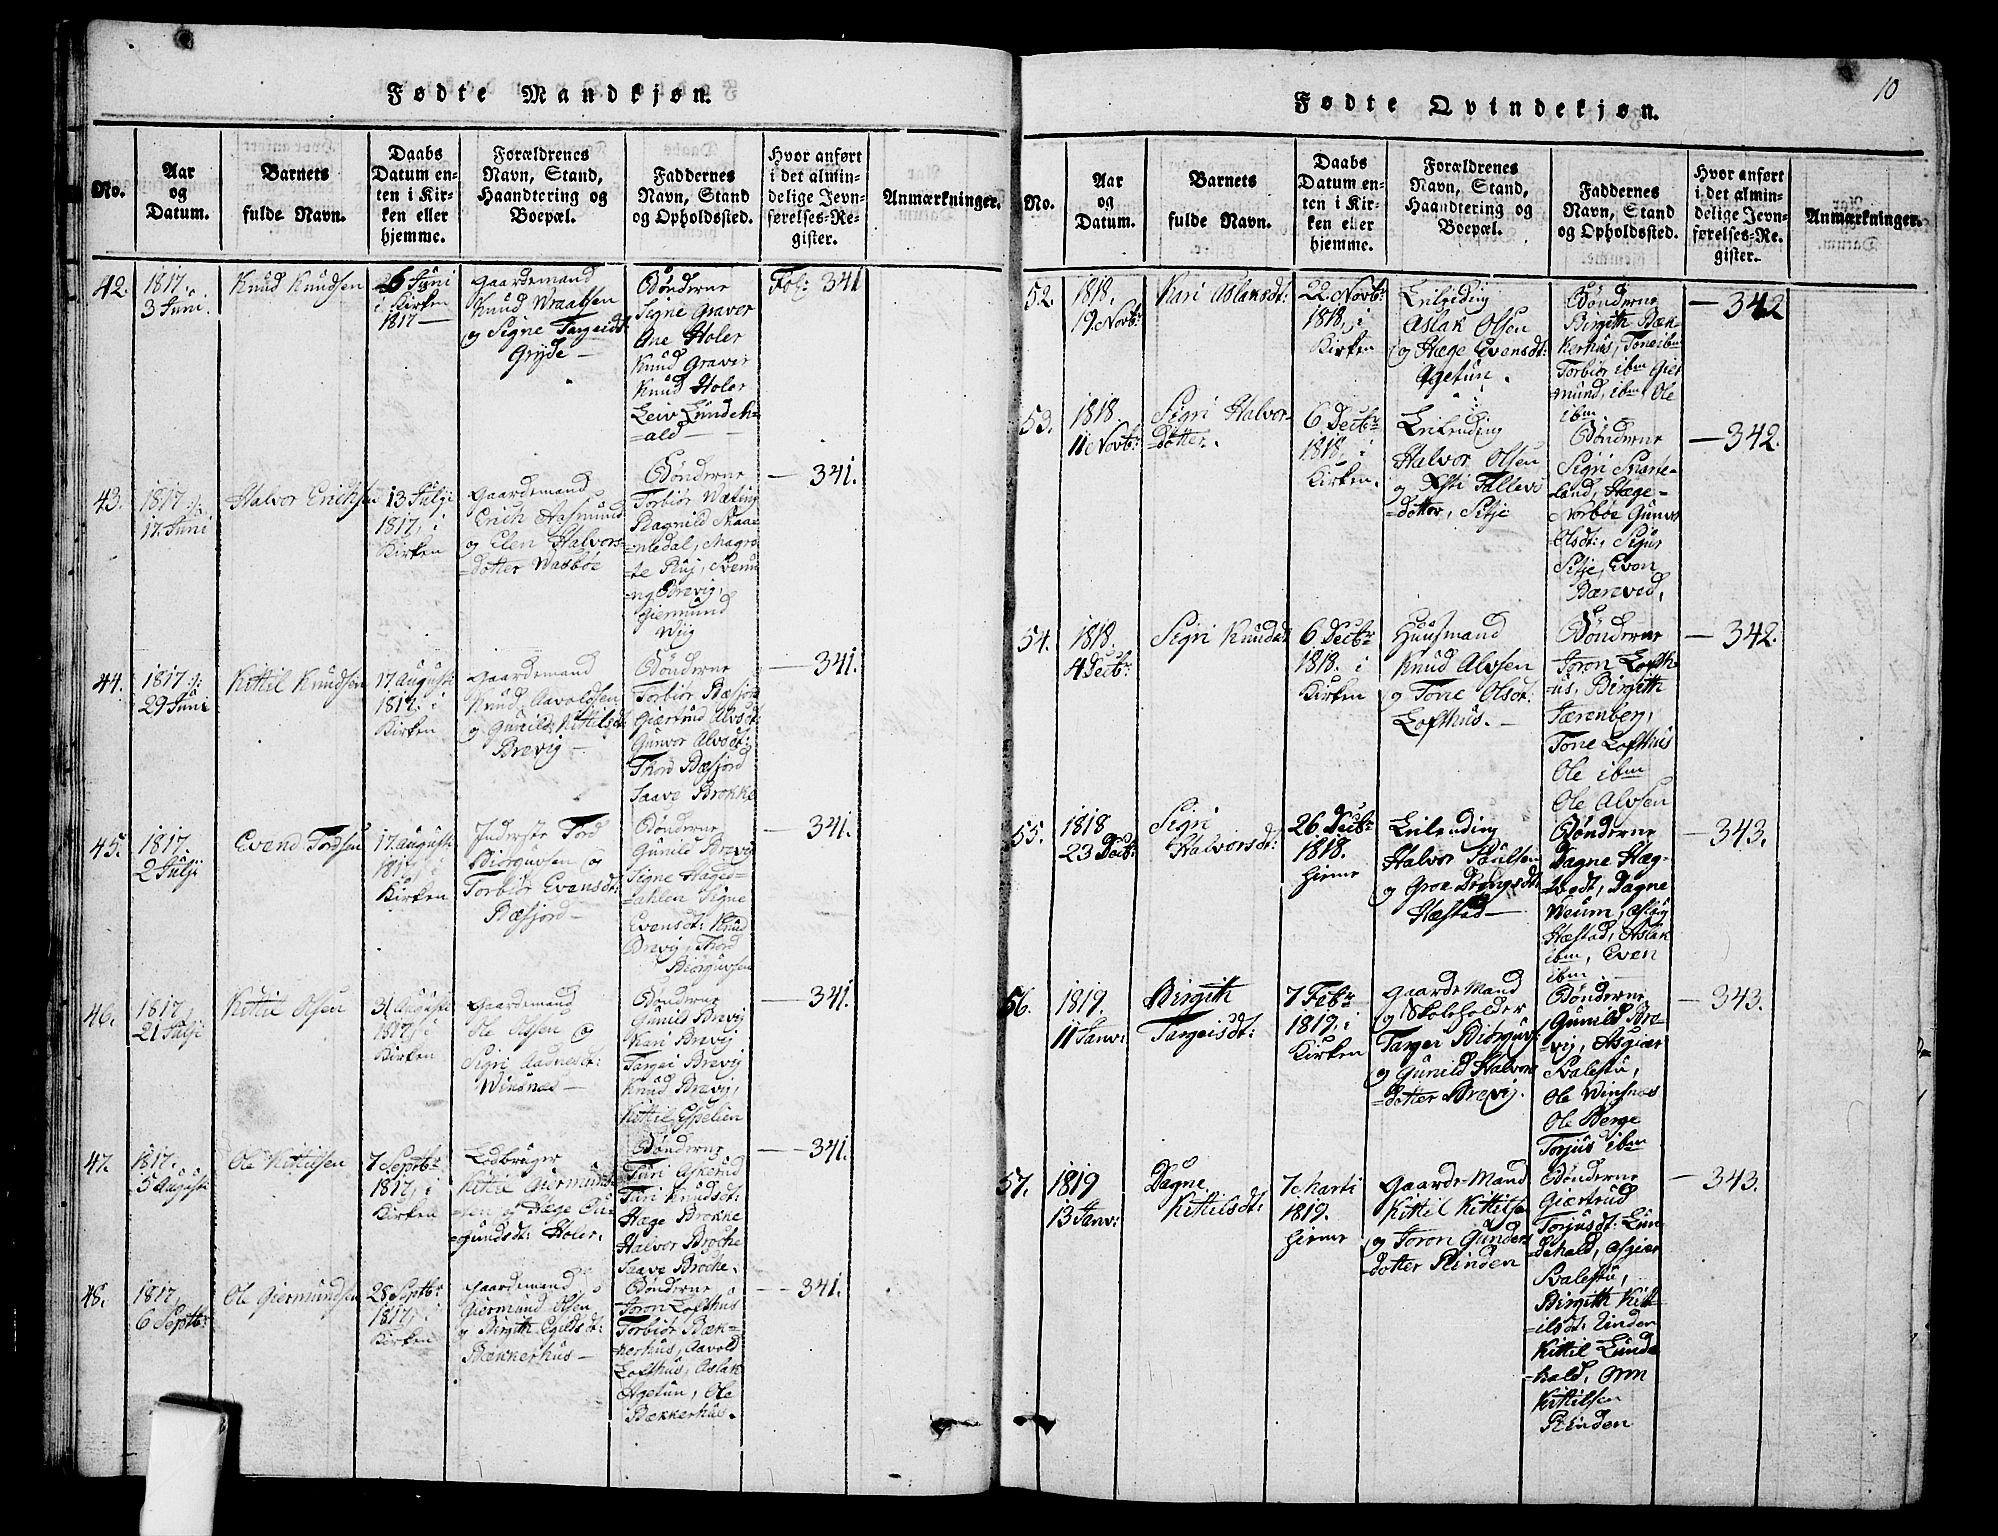 Fødte Mandkjøn.
No.
Aar
og
Datum.
Barnets
fulde Navn.
Daabs
Datum en-
ten i Kir-
ken eller
hjemme.
Forældrenes
Navn, Stand,
Haandtering og
Boepæl.
Faddernes
Navn, Stand
og Opholdssted.
Hvor anført
i det almin-
delige Jevn-
førelses-Re-
gister.
Anmærkninger.
42.
1817.
3 Juni.
Knud Knudsen
6 Juni
i Kirken
1817—
Gaardemand
Knud Wraalsen
og Signe Targeidt.
Gryde—
Bønderne
Signe Graver
Ane Holer
Knud Graver
Knud Holer
Lew Lundeh-
=ald—
Fol: 341
43.
1817.
17. Juni
Halvor Erichsen
13 Julj:
1817, i
Kirken
Gaardemand
Erich Aasmund
og Elen Halvors-
=dotter Wasbøe
Bønderne
Torbiør
Ragnild
=nedal, Magre
=te
=ng Brevig,
Giermund
Wiig
—341.
44.
1817
29 Juni
Kittil Knudsen
17 August:
1817. i
Kirken
Gaardemand
Knud Aavoldsen
og Gunild Kittilsdt:
Brevig—
Bønderne
Torbiør Bæsjord
Giertrud Alvsdt:
Gunvor Alvsdt:
Thord Bæsjord
Saave Brokke
—341.
45.
1817.
2 Julji
Evend Tordsen
17 August:
1817, i
Kirken
Inderste Tord
Biørguvsen og
Torbiør Evensdt:
Bæsjord—
Bønderne
Gunild Brevig
Signe Hages=
=dahlen Signe
Evensdt: Knud
Brevij, Thord
Biørguvsen
—341.
46.
1817,
21 Julji
Kittil Olsen
31 August:
1817, i
Kirken
Gaardemand
Ole Olsen og
Sigri Aadnesdt:
Winsnes—
Bønderne
Gunild Brevij
Kari Brevij
Targei Brevij
Knud Brevij,
Kittil Espelien
—341.
47.
1817.
5 August:
Ole Kittilsen
7 Septbr
1817, i
Kirken
Lodbruger
Kittil Giermund-
=sen og Hæge Au-
=gundsdt: Holer.
Bønderne
Turi Askerud
Turi Knudsdt:
Hæge Brokke
Halvor Broche
Saave Broche.
—341.
48.
1817,
6 Septb:
Ole Giermundsen
28 Septbr
1817, i
Kirken
Gaardemand
Giermund Olsen
og Birgith Egilsdt:
Bækkerhus—
Bønderne
Joron Lofthus
Torbiør Bæk=
=kerhus, Aavold
Lofthus, Aslak
Agetun, Ole
Bækkerhus.
—341.
10
Fødte Qvindekjøn.
No.
Aar
og
Datum.
Barnets
fulde Navn.
Daabs
Datum en-
ten i Kir-
ken eller
hjemme.
Forældrenes
Navn, Stand,
Haandtering og
Boepæl.
Faddernes
Navn, Stand
og Opholdssted.
Hvor anført
i det almin-
delige Jevn-
førelses-Re-
gister.
Anmærkninger.
52.
1818.
19. Novb:
Kari Aslaksdt:
22 Novb:
1818, i
Kirken
Leilending
Aslak Olsen
og Hæge Evensdt:
Agetun.
Bønderne
Birgith Bæk-
kerhus, Tone ibm
Torbiør ibm Gier
mund, ibm, Ole
ibm.
—342
53.
1818.
11 Novb:
Sigri Halvor-
=dotter.
6 Decbr
1818, i
Kirken.
Leilending
Halvor Olsen
og Tallevs
=dotter, Sitje
Bønderne
Sigri
land, Hæge
Norbøe Gunvor
Olsdt:, Sigur
Sitje, Even
Bareved,
—342.
54.
1818,
4 Decbr:
Sigri Knudsdt
6 Decbr
1818. i
Kirken
Huusmand
Knud Alvsen
og Tone Olsdt:
Lofthus.—
Bønderne
Joron Lofth-
us, Birgith
Tone Lofthus
Ole ibm
Ole Alvsen
—342.
55.
1818
23 Decb:
Sigri
Halvorsdt:
26. Decbr
1818.
hieme
Leilending
Halvor Paulsen
og Groe
Hæstad—
Bønderne
Dagne Hæg-
Dagne
Weum,
Hæstad, Aslak
ibm, Even
ibm
—343.
56.
1819.
11 Janv:
Birgith
Targeisdt:
7 Febr
1819, i
Kirken
Gaardemand
og Skoleholder
Targei Biørguvs:
og Gunild Halvors
=dotter Brevij.
Bønderne
Gunild Bre-
vij, Asgier
Svalestu,
Ole Winsnes
Ole Berge
Torjus ibm
—343.
57.
1819
13 Janv:
Dagne
Kittilsdt:
7 Marti
1819.
hieme
Gaarde-Mand
Kittil Kittilsen
og Joron Gunders
=dotter Rinden
Bønderne
Giertrud
Torjusdt: Lun-
dehald, Asgier
Svalestu,
Birgith Kitt-
=ilsdt: Rinden
Kittil Lunde
hald,
Kittilsen
Rinden
—343.